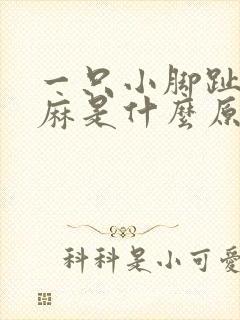 一只小脚趾
麻是什麼原
科科是小可愛